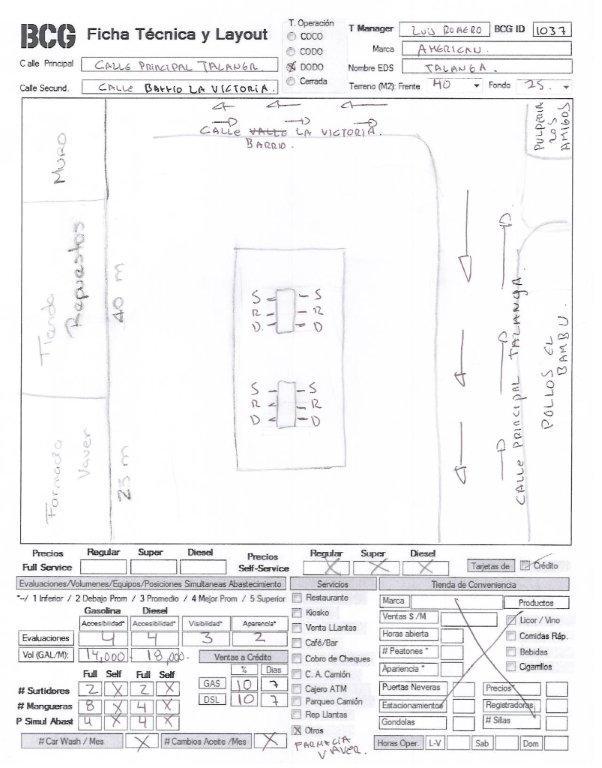 BCG Ficha Técnica y Layout
T. Operación
COCO
CODO
DODO
Cerrada
T Manager LUIS ROMERO BCG ID 1037
Marca AMERICAN.
Calle Principal CALLE PRINCIPAL TALANGA. Nombre EDS TALANGA.
Calle Secund. CALLE BARRIO LA VICTORIA. Terreno (M2): Frente 40 Fondo 25.
CALLE VALLE LA VICTORIA.
BARRIO.
MURO
PULPERIA
LOS
AMIGOS
Tienda
Repuestos
40 m
S S
R R
D D
S S
R R
D D
CALLE PRINCIPAL TALANGA.
POLLOS EL
BAMBU.
Vaver
25 m
Precios Regular Super Diesel
Full Service
Precios Regular Super Diesel
Self-Service X X X
Tarjetas de Crédito
Evaluaciones/Volumenes/Equipos/Posiciones Simultaneas Abastecimiento
*--/ 1 Inferior / 2 Debajo Prom / 3 Promedio / 4 Mejor Prom / 5 Superior
Gasolina Diesel
Accesibilidad* Accesibilidad* Visibilidad* Apariencia*
Evaluaciones 4 4 3 2
Vol (GAL/M): 14,000- 18,000-
Ventas a Crédito
% Dias
GAS 10 7
DSL 10 7
Full Self Full Self
# Surtidores 2 X 2 X
# Mangueras 8 X 4 X
P Simul Abast 4 X 4 X
# Car Wash / Mes X # Cambios Aceite /Mes X
Servicios
Restaurante
Kiosko
Venta LLantas
Café/Bar
Cobro de Cheques
C. A. Camión
Cajero ATM
Parqueo Camión
Rep Llantas
X Otros
VAVER.
Tienda de Conveniencia
Marca
Ventas $ /M
Horas abierta
# Peatones *
Apariencia *
Puertas Neveras
Estacionamientos
Gondolas
Productos
Licor / Vino
Comidas Ráp.
Bebidas
Cigarrillos
Precios*
Registradoras
# Sillas
Horas Oper. L-V Sab Dom